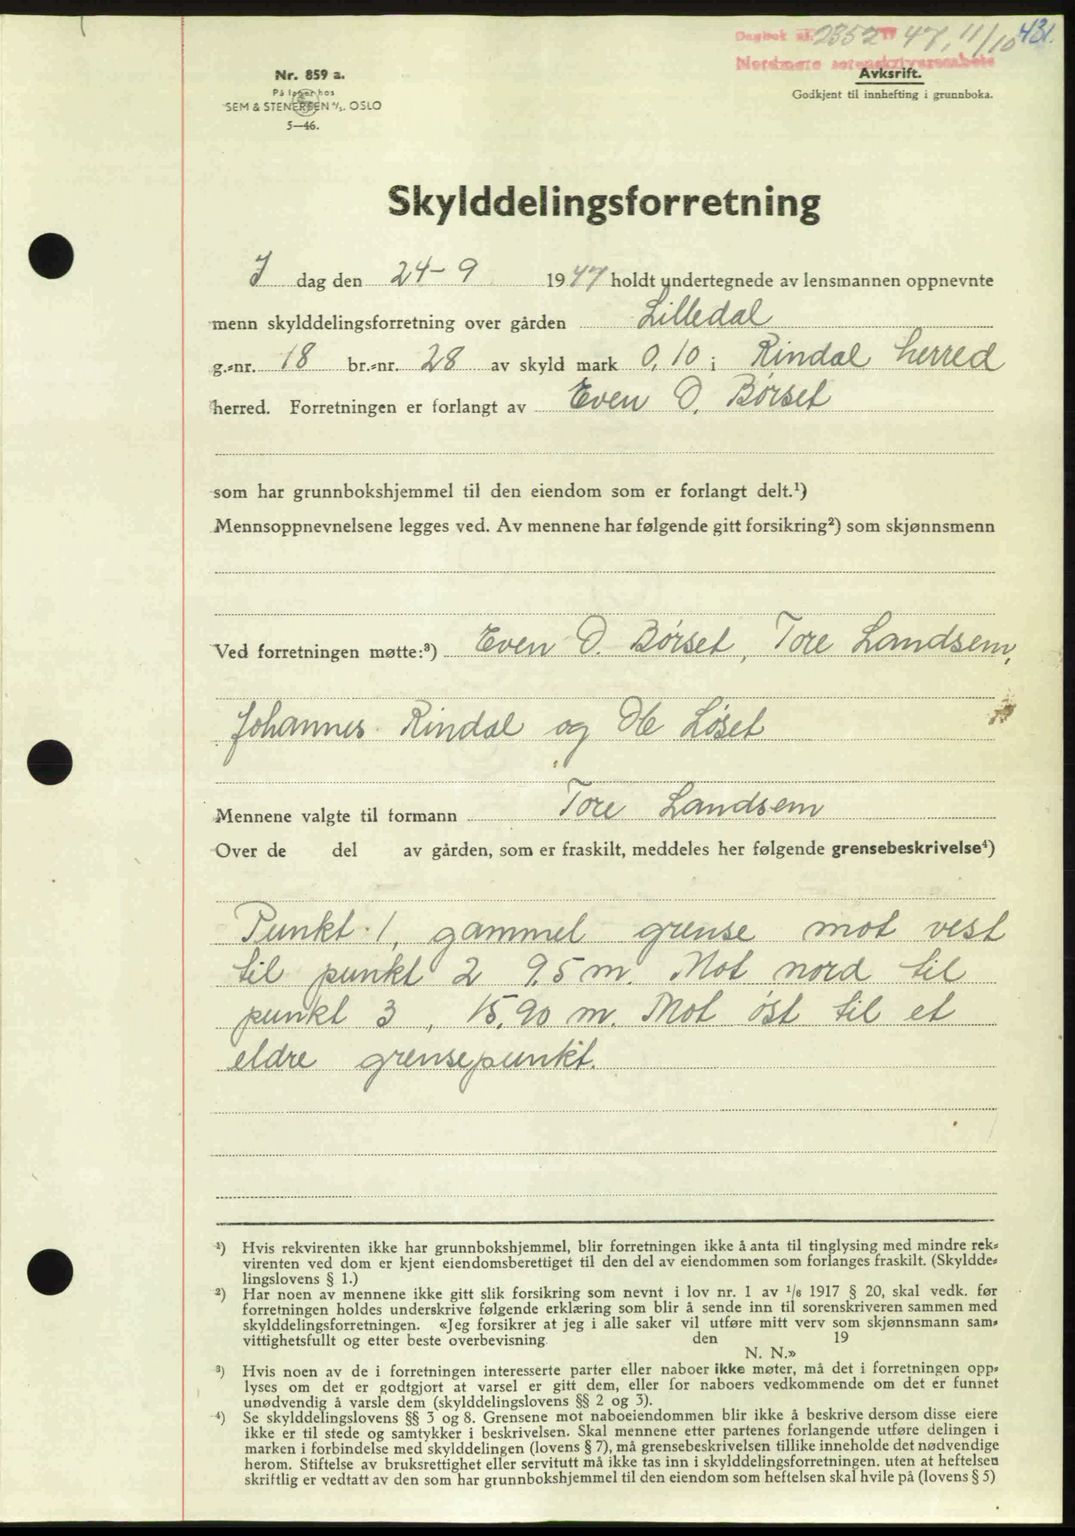 Dagbok nr. 2352 47, 11/10 431.
Nordmøre sorenskriverembete
Nr. 859 a.
På lager hos
SEM & STENERSEN A/S. OSLO
5—46.
Avkskrift.
Godkjent til innhefting i grunnboka.
Skylddelingsforretning
I dag den 24-9 1947 holdt undertegnede av lensmannen oppnevnte
menn skylddelingsforretning over gården Lilledal
g.-nr. 18 br.-nr. 28 av skyld mark 0,10 i Rindal herred
herred. Forretningen er forlangt av Even O. Børset
som har grunnbokshjemmel til den eiendom som er forlangt delt.¹)
Mennsoppnevnelsene legges ved. Av mennene har følgende gitt forsikring²) som skjønnsmenn
Ved forretningen møtte:³) Even O. Børset, Tore Landsem,
Johannes Rindal og Ole Løset
Mennene valgte til formann Tore Landsem
Over de del av gården, som er fraskilt, meddeles her følgende grensebeskrivelse⁴)
Punkt 1, gammel grense mot vest
til punkt 2 9.5 m. Mot nord til
punkt 3, 15,90 m. Mot øst til et
eldre grensepunkt.
¹) Hvis rekvirenten ikke har grunnbokshjemmel, blir forretningen ikke å anta til tinglysing med mindre rek-
virenten ved dom er kjent eiendomsberettiget til den del av eiendommen som forlanges fraskilt. (Skyldde-
lingslovens § 1.)
²) Har noen av mennene ikke gitt slik forsikring som nevnt i lov nr. 1 av 1/6 1917 § 20, skal vedk. før
forretningen holdes underskrive følgende erklæring som blir å sende inn til sorenskriveren sammen med
skylddelingsforretningen. «Jeg forsikrer at jeg i alle saker vil utføre mitt verv som skjønnsmann sam-
vittighetsfullt og etter beste overbevisning. den 19
N. N.»
³) Hvis noen av de i forretningen interesserte parter eller naboer ikke møter, må det i forretningen opp-
lyses om det er godtgjort at varsel er gitt dem, eller for naboers vedkommende om det er funnet
unødvendig å varsle dem (skylddelingslovens §§ 2 og 3).
⁴) Se skylddelingslovens §§ 3 og 8. Grensene mot naboeiendommen blir ikke å beskrive dersom disse eiere
ikke er til stede og samtykker i beskrivelsen. Skal mennene etter partenes forlangende utføre delingen i
marken i forbindelse med skylddelingen (lovens § 7), må grensebeskrivelsen tillike inneholde det nødvendige
herom. Stiftelse av bruksrettighet eller servitutt må ikke tas inn i skylddelingsforretningen. uten at heftelsen
skriftlig er vedtatt av den som har grunnbokshjemmel til den eiendom som heftelsen skal hvile på (lovens § 5)